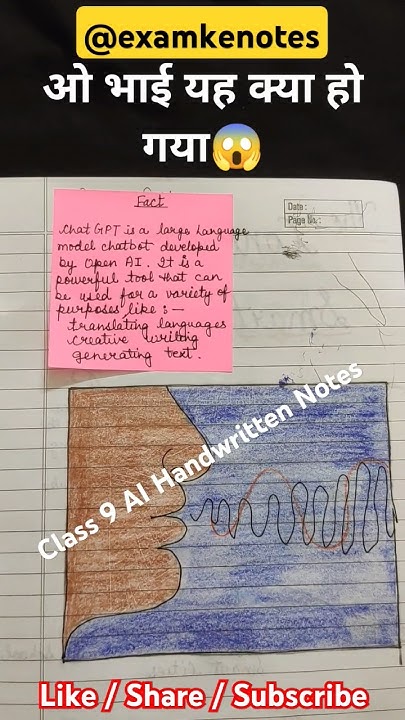 @examkenotes
ओ भाई यह क्या हो
गया😱
Fact
Date :
Page No :
Chat GPT is a large language
model chatbot developed
by Open AI. It is a
powerful tool that can
be used for a variety of
purposes like :—
translating languages
creative writing
generating text.
Class 9 AI Handwritten Notes
Like / Share / Subscribe